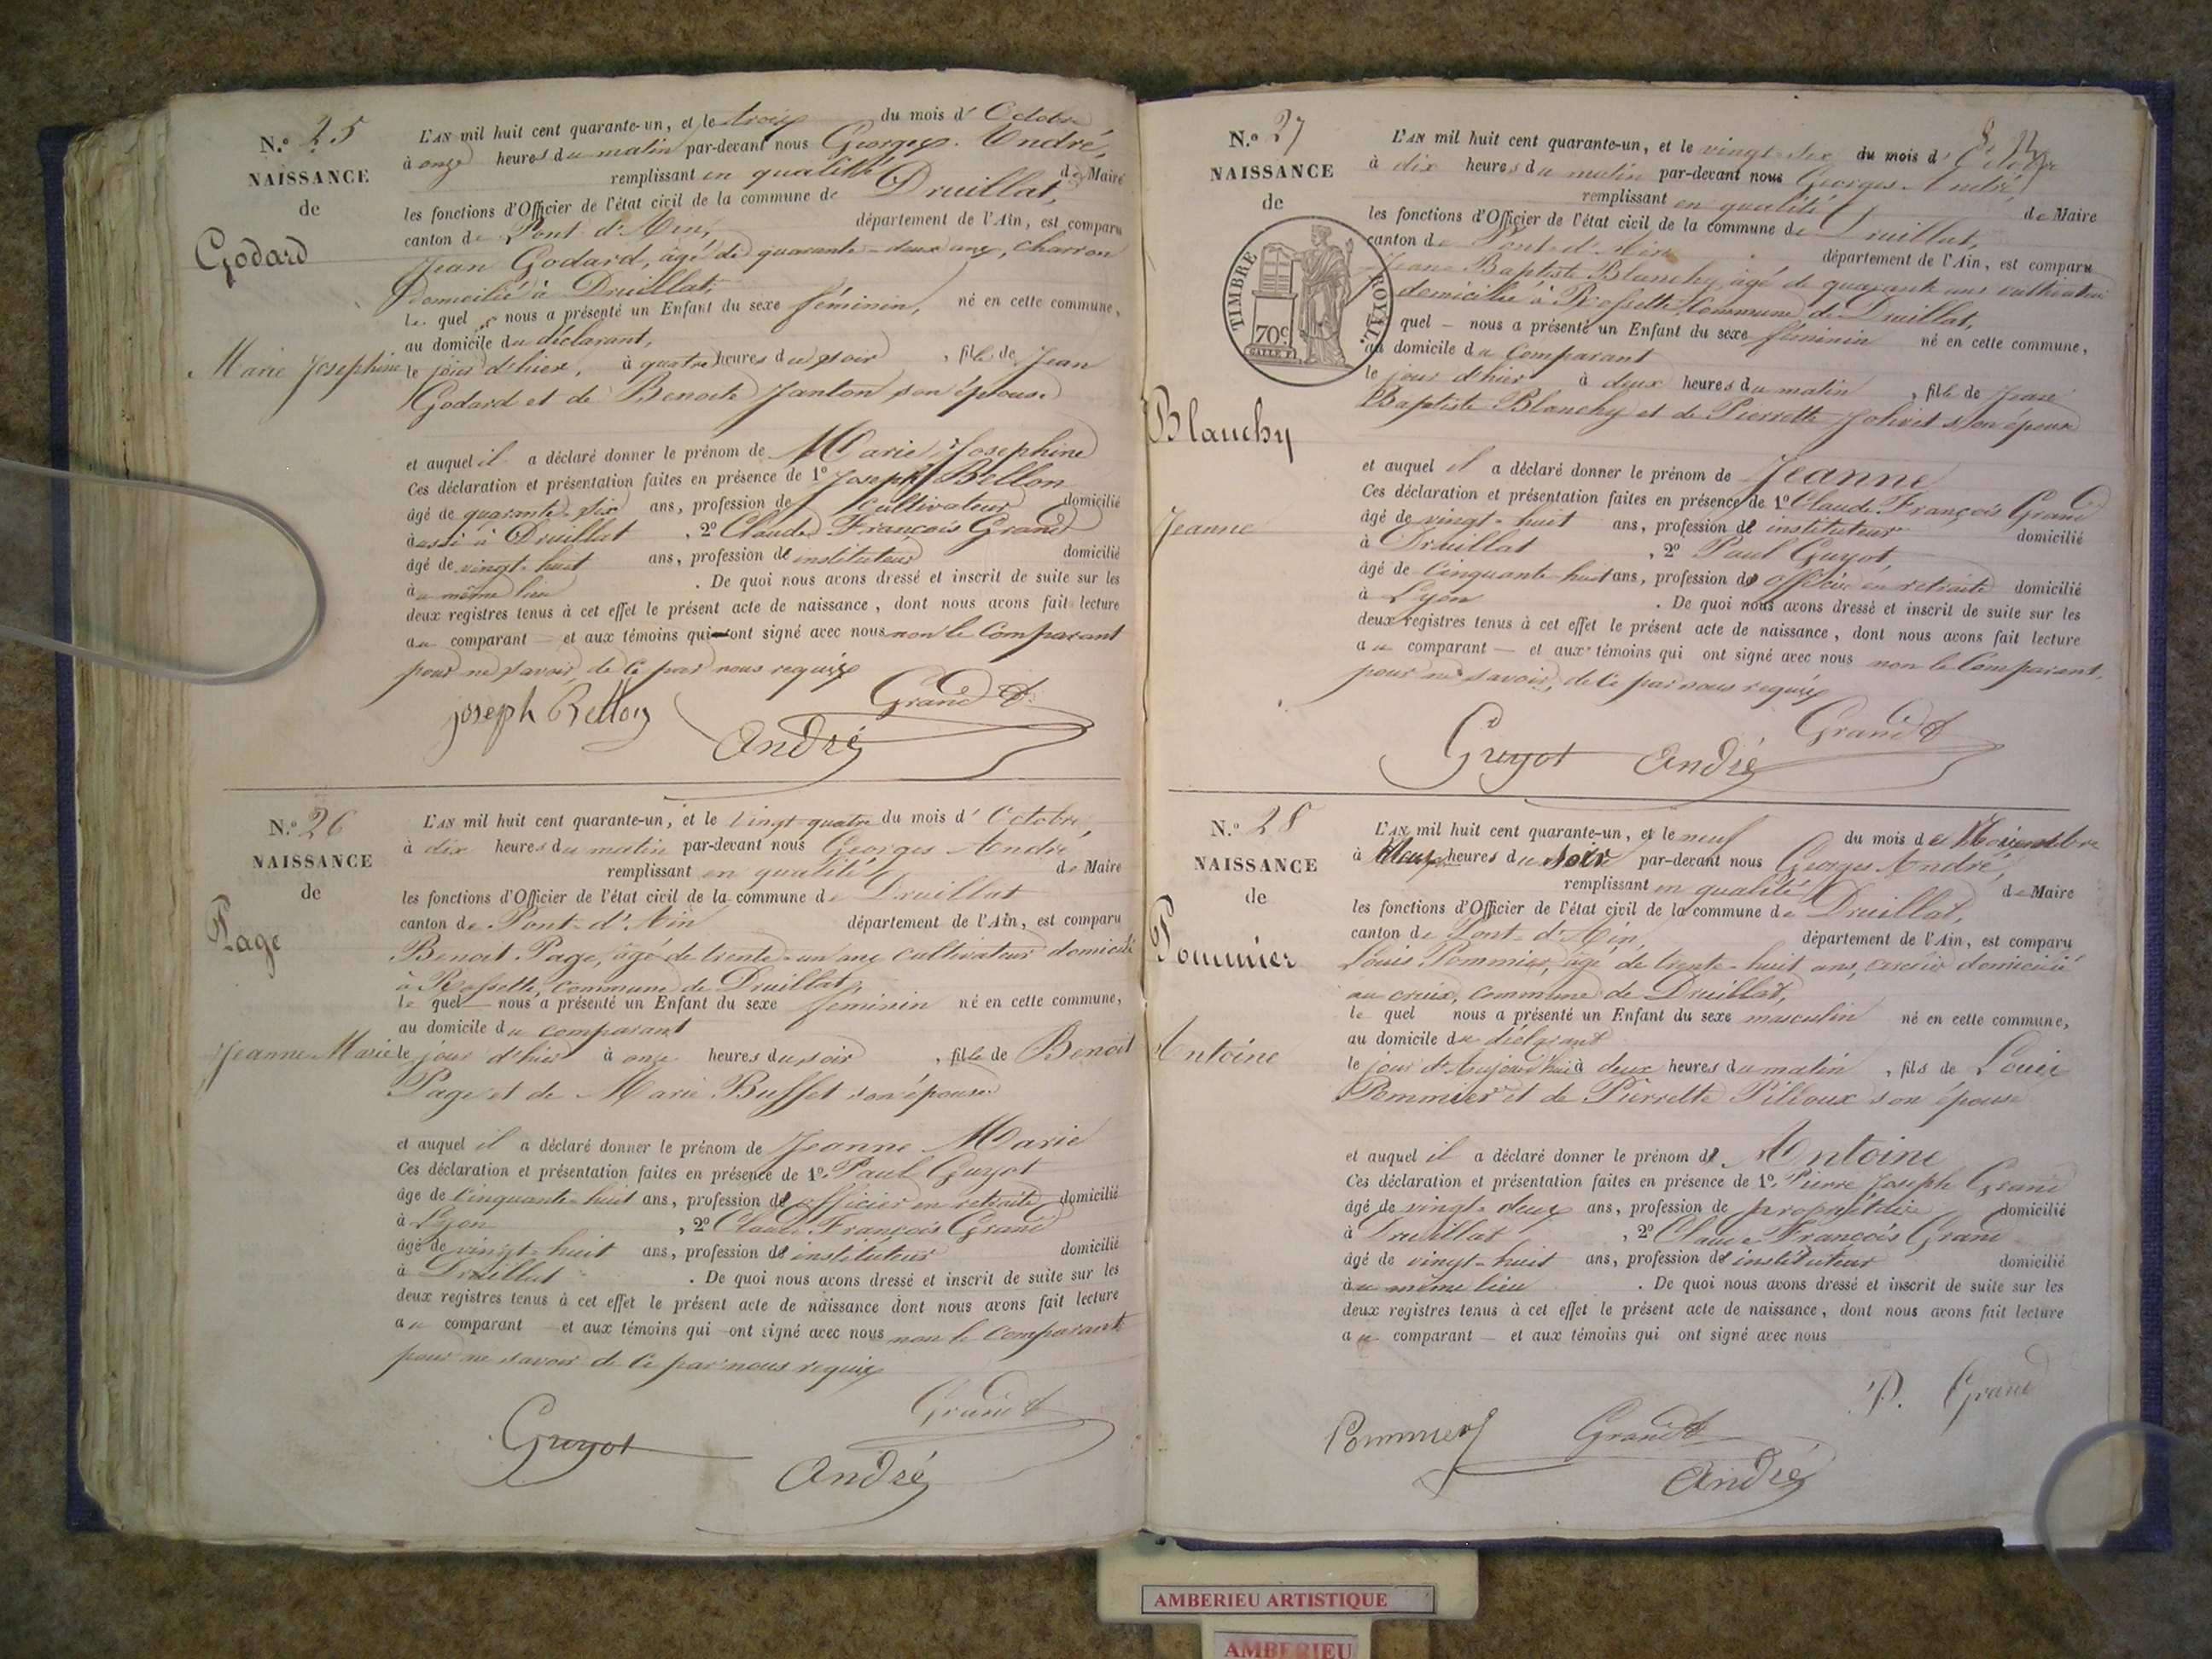 N.º 25
NAISSANCE
de
Godard
Marie Josephine
L'AN mil huit cent quarante-un, et le trois du mois d'Octobre
à onze heures du matin par-devant nous Georges André,
remplissant en qualité de Maire
les fonctions d'Officier de l'état civil de la commune de Druillat,
canton de Pont d'Ain, département de l'Ain, est comparu
Jean Godard, âgé de quarante-deux ans, charron
domicilié à Druillat,
Le quel nous a présenté un Enfant du sexe féminin, né en cette commune,
au domicile du déclarant,
le jour d'hier, à quatre heures du soir, fille de Jean
Godard et de Benoite Janton son épouse
et auquel il a déclaré donner le prénom de Marie Josephine
Ces déclaration et présentation faites en présence de 1º Joseph Bellon
âgé de quarante-six ans, profession de Cultivateur domicilié
à Druillat, 2º Claude François Grand
âgé de vingt-huit ans, profession de instituteur domicilié
au même lieu. De quoi nous avons dressé et inscrit de suite sur les
deux registres tenus à cet effet le présent acte de naissance, dont nous avons fait lecture
au comparant et aux témoins qui ont signé avec nous non le Comparant
pour ne savoir, de ce par nous requis
Joseph Bellon Grand
André
N.º 26
NAISSANCE
de
Page
Jeanne Marie
L'AN mil huit cent quarante-un, et le vingt-quatre du mois d'Octobre,
à dix heures du matin par-devant nous Georges André
remplissant en qualité de Maire
les fonctions d'Officier de l'état civil de la commune de Druillat
canton de Pont-d'Ain département de l'Ain, est comparu
Benoit Page, âgé de trente-un ans cultivateur domicilié
à Rossette, commune de Druillat,
le quel nous a présenté un Enfant du sexe féminin né en cette commune,
au domicile du comparant
le jour d'hier à onze heures du soir, fille de Benoit
Page et de Marie Buffet son épouse
et auquel il a déclaré donner le prénom de Jeanne Marie
Ces déclaration et présentation faites en présence de 1º. Paul Guyot
âge de Cinquante-huit ans, profession de officier en retraite domicilié
à Lyon, 2º Claude François Grand
âgé de vingt-huit ans, profession de instituteur domicilié
à Druillat. De quoi nous avons dressé et inscrit de suite sur les
deux registres tenus à cet effet le présent acte de naissance dont nous avons fait lecture
au comparant et aux témoins qui ont signé avec nous non le Comparant
pour ne savoir de ce par nous requis
Guyot Grand
André
N.º 27
NAISSANCE
de
TIMBRE ROYAL
70c
Blanchy
Jeanne
L'AN mil huit cent quarante-un, et le vingt-six du mois d'Octobre
à dix heures du matin par-devant nous Georges André,
remplissant en qualité de Maire
les fonctions d'Officier de l'état civil de la commune de Druillat,
canton de Pont-d'Ain département de l'Ain, est comparu
Jean Baptiste Blanchy, âgé de quarante ans cultivateur
domicilié à Rossette, Commune de Druillat,
quel nous a présenté un Enfant du sexe féminin né en cette commune,
au domicile du Comparant
le jour d'hier à deux heures du matin, fille de Jean
Baptiste Blanchy et de Pierrette Jolivet son épouse
et auquel il a déclaré donner le prénom de Jeanne
Ces déclaration et présentation faites en présence de 1º Claude François Grand
âgé de vingt-huit ans, profession de instituteur domicilié
à Druillat, 2º Paul Guyot,
âgé de Cinquante-huit ans, profession de officier en retraite domicilié
à Lyon. De quoi nous avons dressé et inscrit de suite sur les
deux registres tenus à cet effet le présent acte de naissance, dont nous avons fait lecture
au comparant et aux témoins qui ont signé avec nous non le Comparant,
pour ne savoir, de ce par nous requis
Guyot André Grand
N.º 28
NAISSANCE
de
Pommier
Antoine
L'AN mil huit cent quarante-un, et le neuf du mois de Novembre
à heures du soir par-devant nous Georges André,
remplissant en qualité de Maire
les fonctions d'Officier de l'état civil de la commune de Druillat,
canton de Pont-d'Ain, département de l'Ain, est comparu
Louis Pommier, âgé de trente-huit ans, domicilié
au creux, commune de Druillat,
le quel nous a présenté un Enfant du sexe masculin né en cette commune,
au domicile du déclarant
le jour d'Aujourd'hui à deux heures du matin, fils de Louis
Pommier et de Pierrette Pilloux son épouse
et auquel il a déclaré donner le prénom de Antoine
Ces déclaration et présentation faites en présence de 1º. Pierre Joseph Grand
âgé de vingt-deux ans, profession de propriétaire domicilié
à Druillat, 2º Claude François Grand
âgé de vingt-huit ans, profession de instituteur domicilié
au même lieu. De quoi nous avons dressé et inscrit de suite sur les
deux registres tenus à cet effet le présent acte de naissance, dont nous avons fait lecture
au comparant et aux témoins qui ont signé avec nous
P. Grand
Pommier Grand
André
AMBERIEU ARTISTIQUE
AMBERIEU